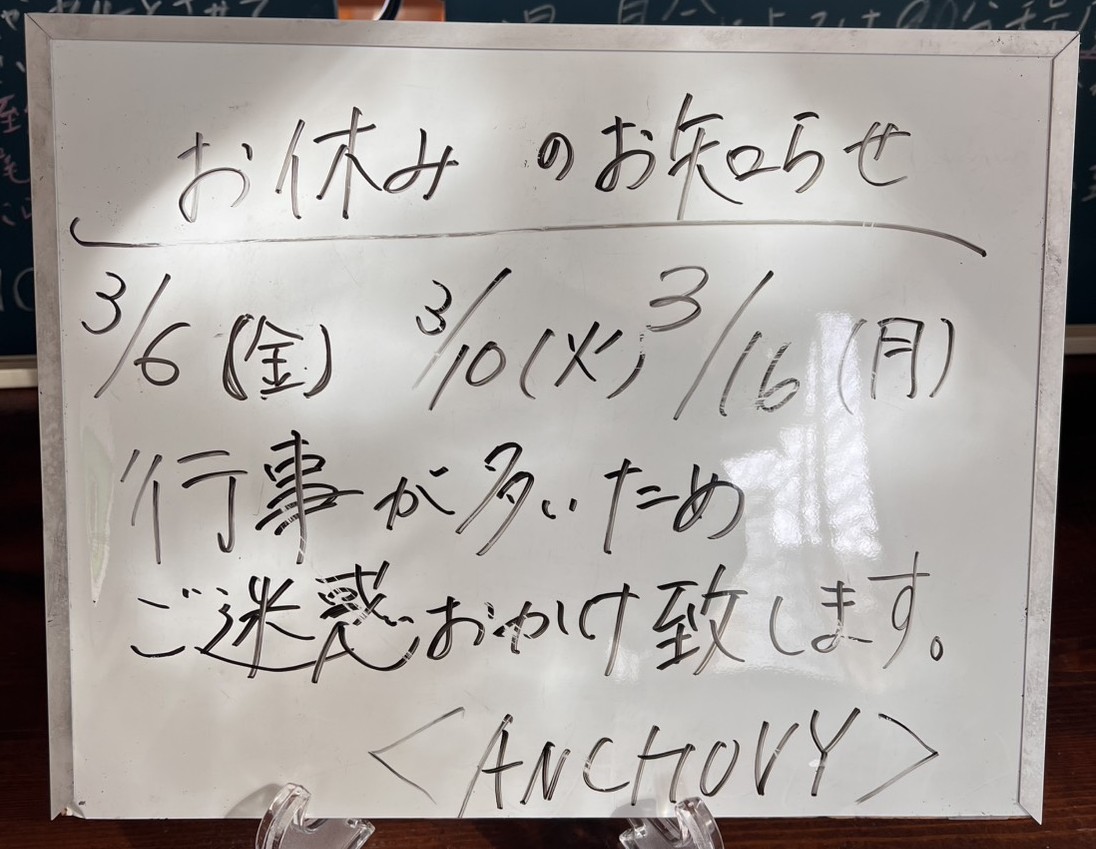 お休みのお知らせ
3/6(金) 3/10(火) 3/16(月)
行事が多いため
ご迷惑おかけ致します。
<ANCHOVY>